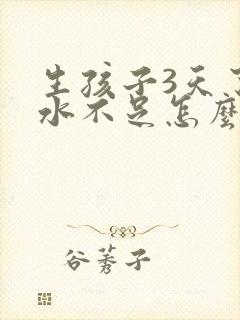 生孩子3天
水不足怎麼
谷莠子